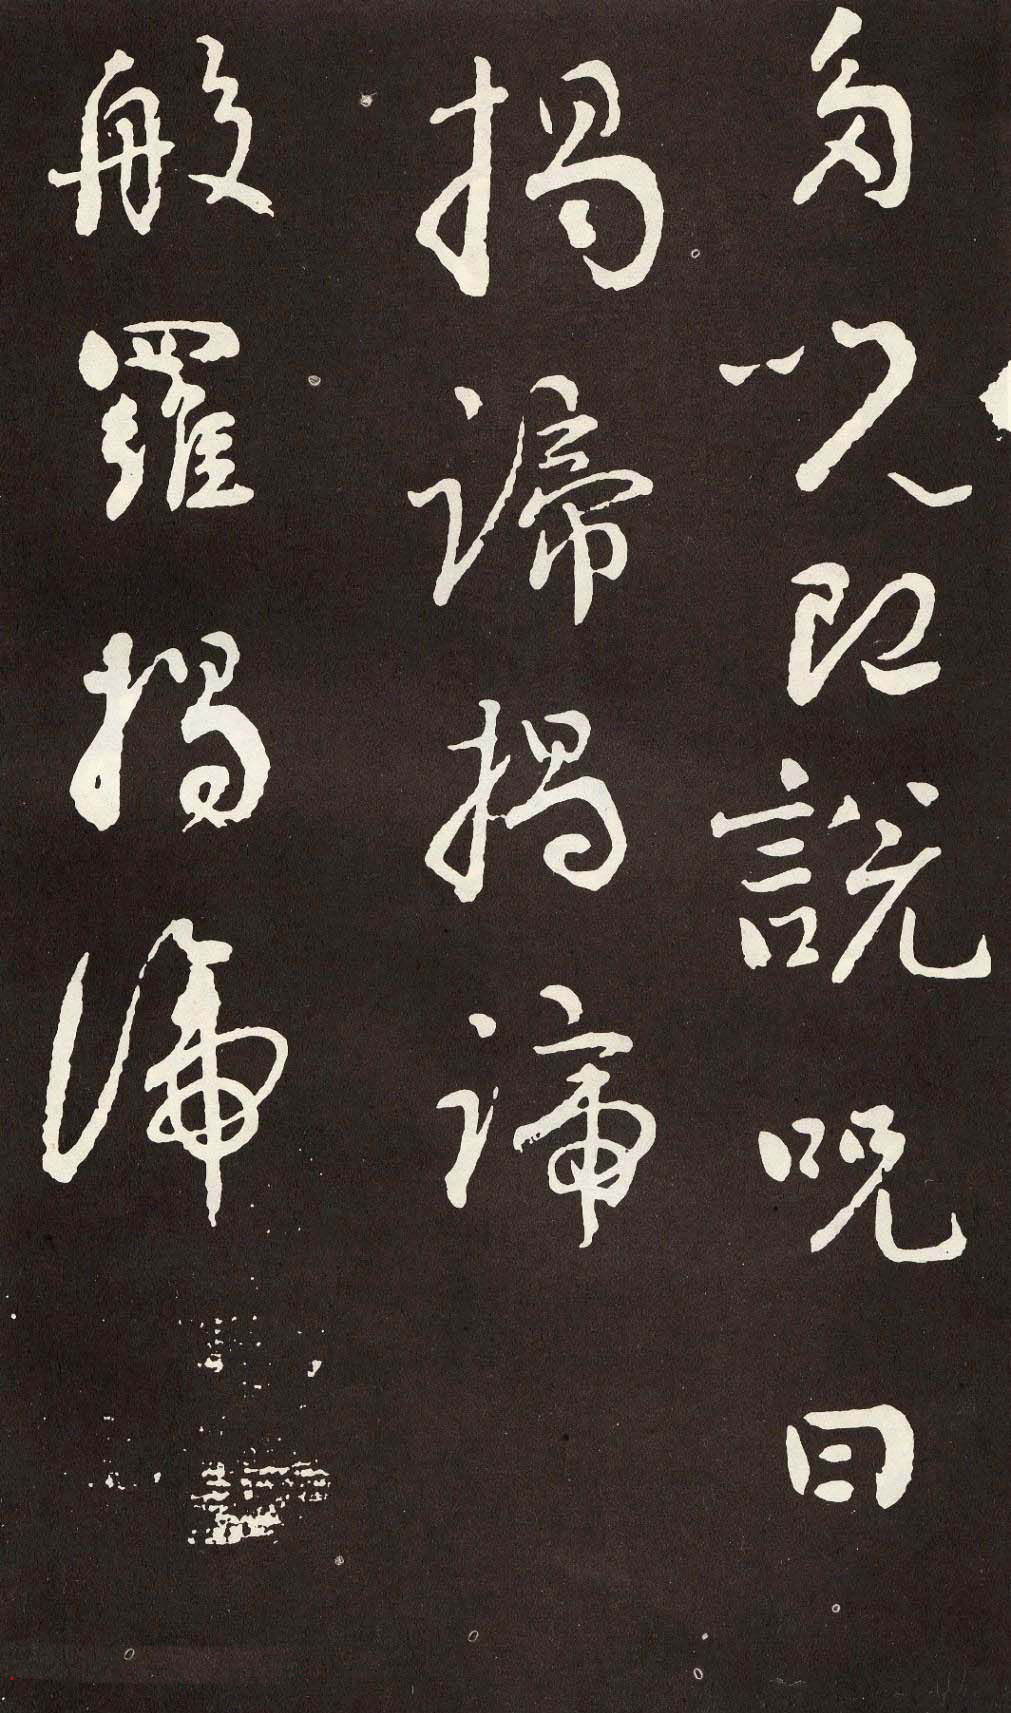 多咒即說咒曰
揭諦揭諦
般羅揭諦